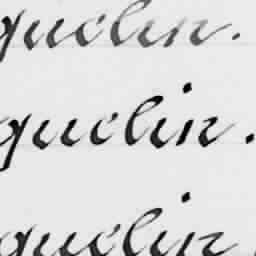 quelin.
quelin.
quelin.